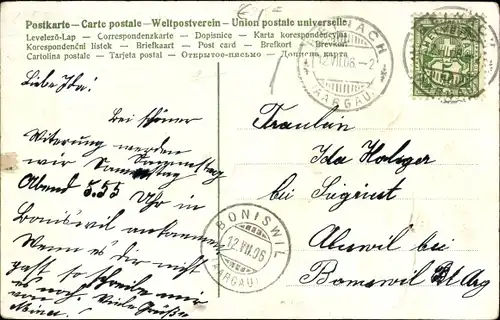 Postkarte — Carte postale — Weltpostverein — Union postale universelle.
Levelező-Lap — Correspondenzkarte — Dopisnice — Karta korespondencyjna
Korespondenční lístek — Briefkaart — Post card — Brefkort — Brevkort
Cartolina postale — Tarjeta postal — Открытое-письмо — Дописна карта
NACH
12.VII.06.-2
AARGAU
HELVETIA
Liebe Ida!
Bei schöner
Witerung werden
wir Sammstag
Samstag
Abend 5.55 Uhr in
Boniswil ankommen
Wenn es dir nicht
passt so schreibe mir
es noch. Viele Grüsse
von
Fraulein
Ida Holliger
bei Siegrist
Alliswil bei
Boniswil Kt Arg
BONISWIL
12.VII.06
(AARGAU)